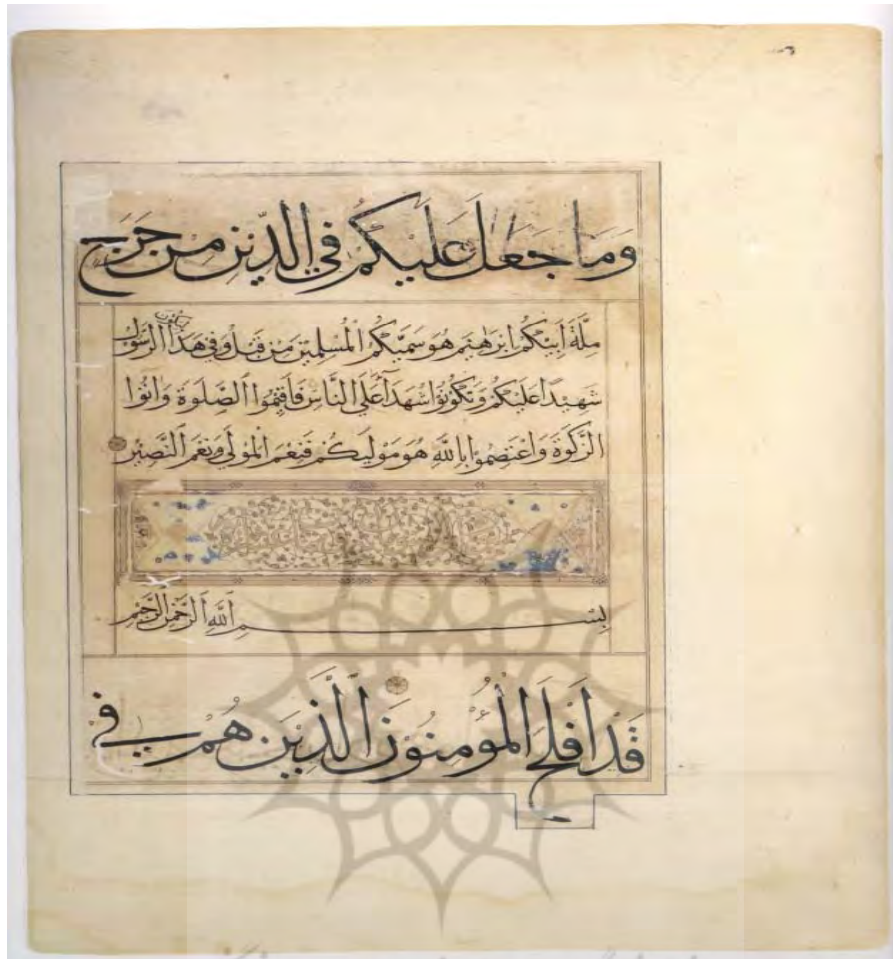 وَمَا جَعَلَ عَلَيْكُمْ فِي الدِّينِ مِنْ حَرَجٍ
مِلَّةَ اَبِيكُمْ اِبْرٰهِيمَ هُوَ سَمّٰيكُمُ الْمُسْلِمِينَ مِنْ قَبْلُ وَفِي هٰذَا لِيَكُونَ الرَّسُولُ
شَهِيدًا عَلَيْكُمْ وَتَكُونُوا شُهَدَآءَ عَلَى النَّاسِ فَاَقِيمُوا الصَّلٰوةَ وَاٰتُوا
الزَّكٰوةَ وَاعْتَصِمُوا بِاللّٰهِ هُوَ مَوْلٰيكُمْ فَنِعْمَ الْمَوْلٰى وَنِعْمَ النَّصِيرُ
بِسْمِ اللّٰهِ الرَّحْمٰنِ الرَّحِيمِ
قَدْ اَفْلَحَ الْمُؤْمِنُونَ الَّذِينَ هُمْ فِي